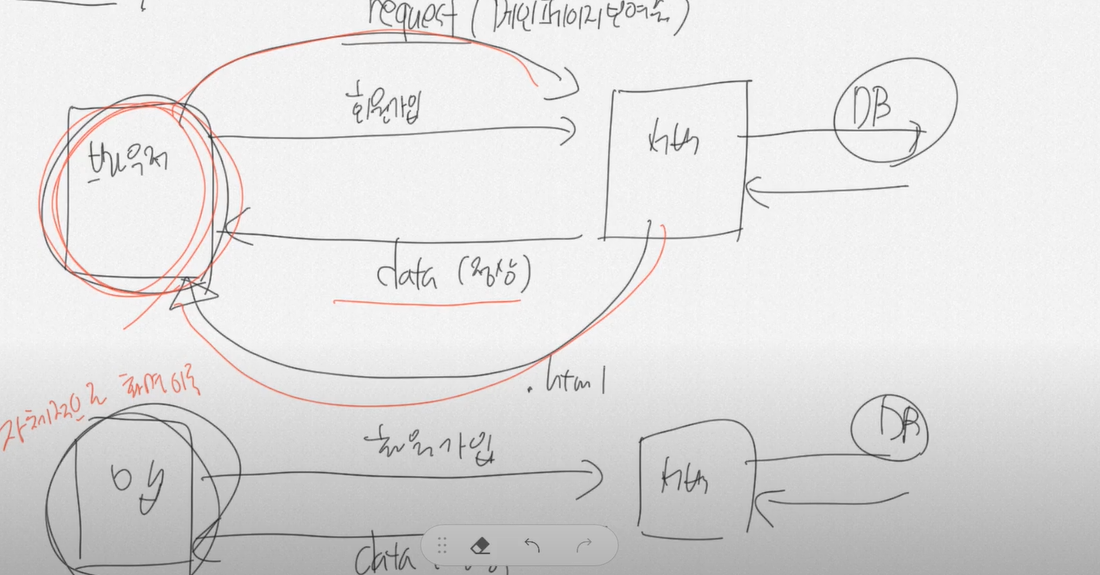 request (메인페이지보여줘)
회원가입
브라우저
서버
DB
data (정상)
.html
자체적으로 화면이동
어플
회원가입
서버
DB
data